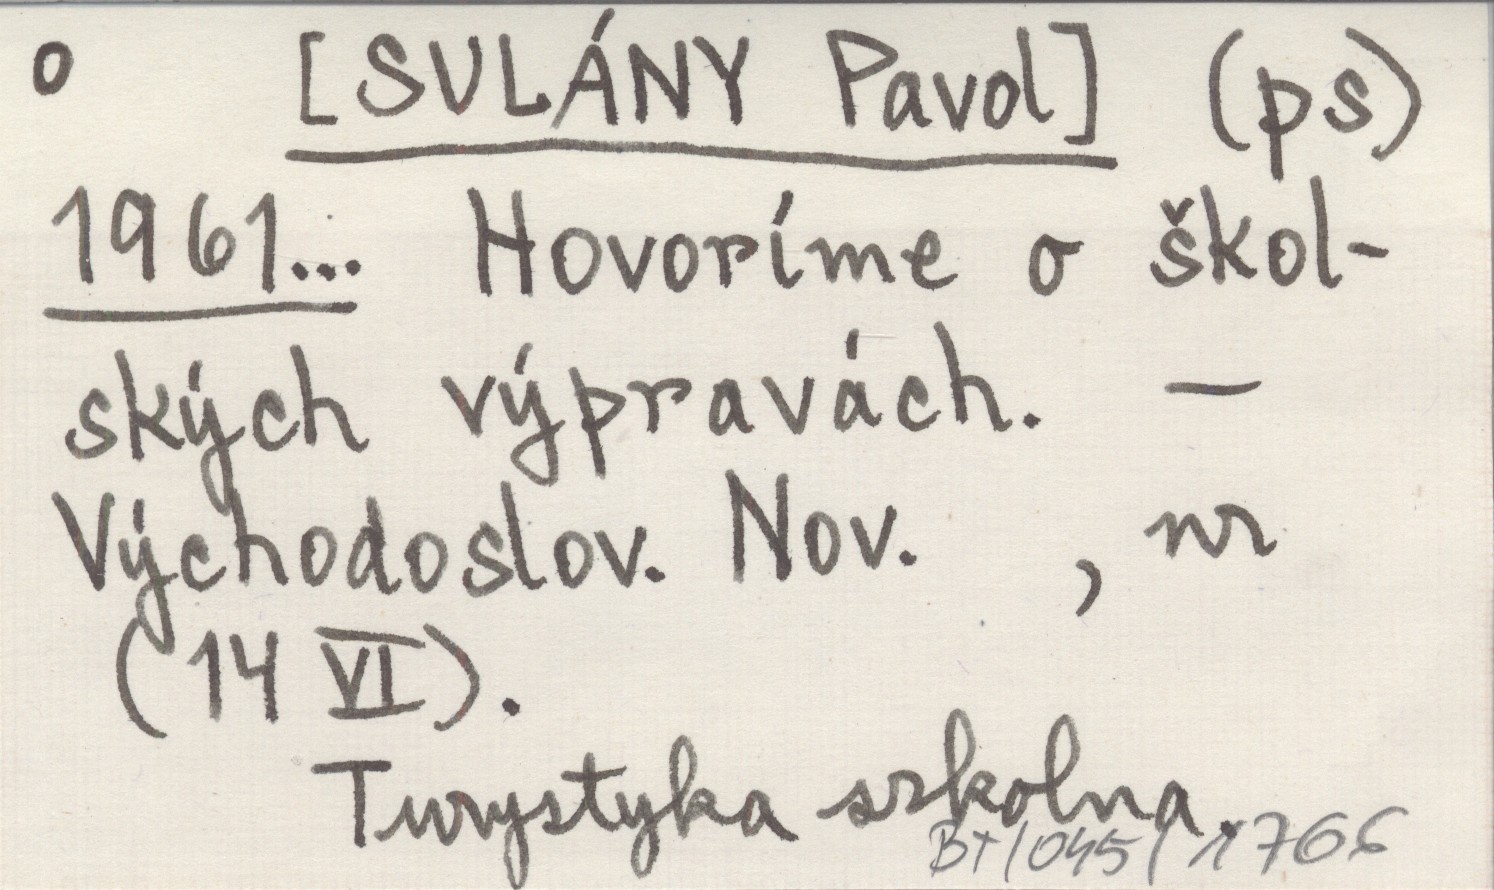 o [SULÁNY Pavol] (ps)
1961... Hovoríme o škol-
ských výpravách. —
Východoslov. Nov. , nr
(14 VI).
Turystyka szkolna.
BT/045/1766